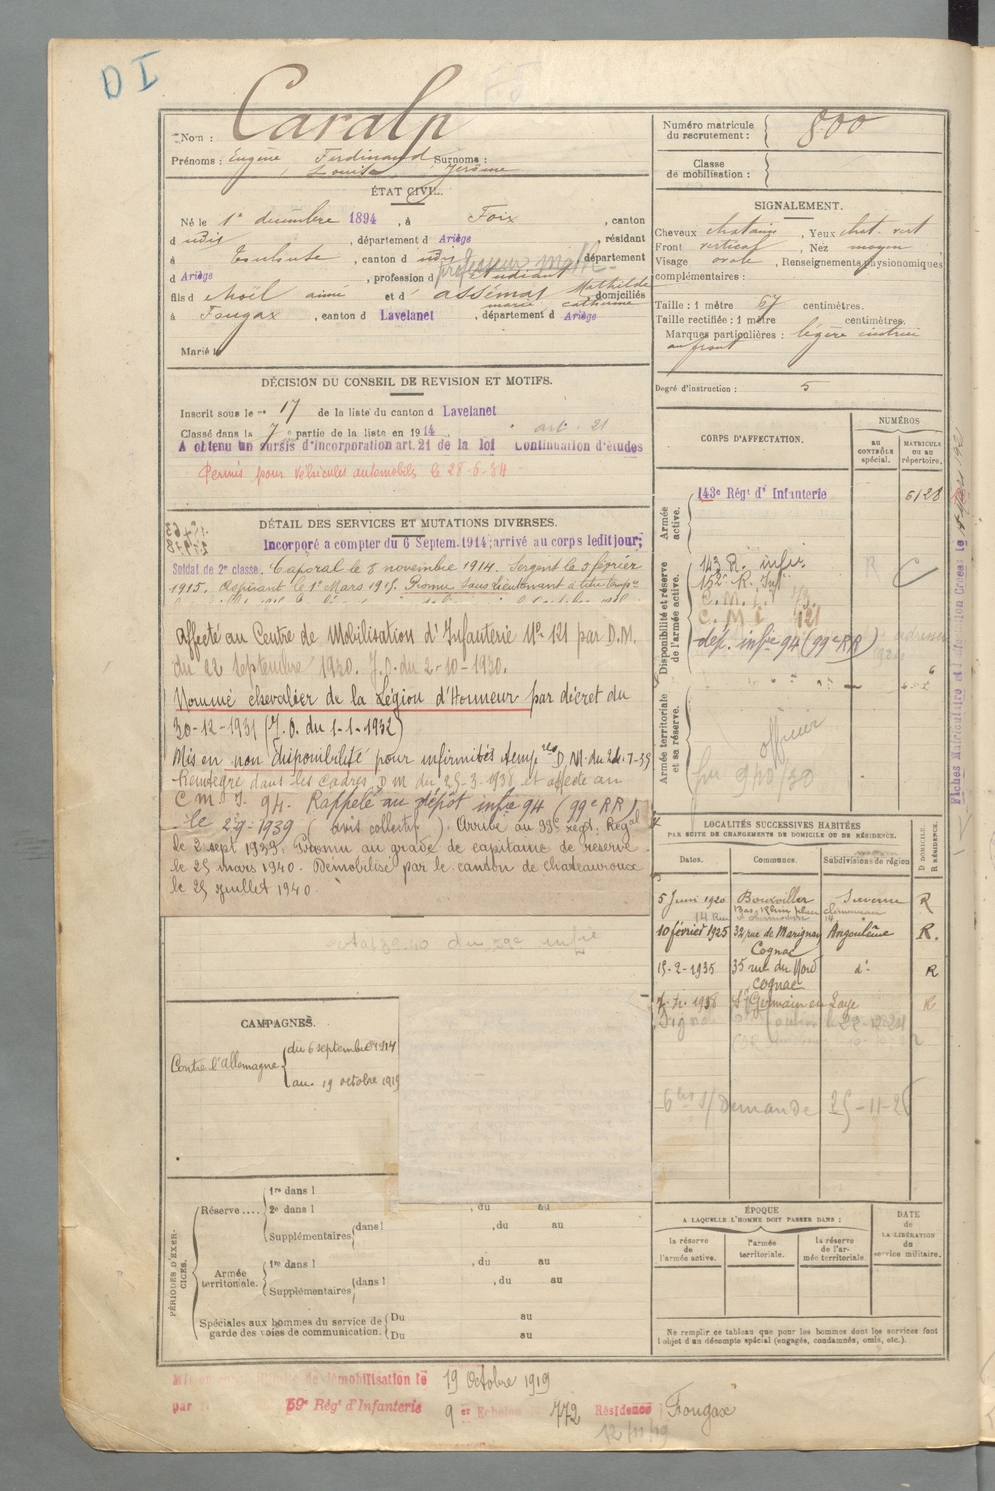 DI
Nom : Caralp
Prénoms : Eugène Ferdinand Surnoms :
Louis Jérôme
ÉTAT CIVIL.
Né le 1er décembre 1894, à Foix, canton
d udit, département d Ariège, résidant
à Toulouse, canton d udit, département
professeur math.
d Ariège, profession d étudiant
fils d Noël aimé et d' assémat Mathilde domiciliés
marie catherine
à Fougax, canton d Lavelanet, département d Ariège
Marié
DÉCISION DU CONSEIL DE REVISION ET MOTIFS.
Inscrit sous le no 17 de la liste du canton d Lavelanet
Classé dans la 7e partie de la liste en 1914. art. 21
A obtenu un sursis d'incorporation art. 21 de la loi Continuation d'études
Permis pour véhicules automobiles le 28-6-34
DÉTAIL DES SERVICES ET MUTATIONS DIVERSES.
Incorporé a compter du 6 Septem. 1914; arrivé au corps ledit jour;
Soldat de 2e classe. Caporal le 8 novembre 1914. Sergent le 5 février
1915. Aspirant le 1er Mars 1915. Promu Sous Lieutenant à titre temp.re
Affecté au Centre de Mobilisation d'Infanterie No 121 par D.M.
du 22 Septembre 1930. J.O. du 2-10-1930.
Nommé chevalier de la Légion d'Honneur par décret du
30-12-1931 (J.O. du 1-1-1932)
Mis en non disponibilité pour infirmités temp.res D.M. du 24-7-35
Réintégré dans les Cadres D.M. du 25-3-1938 et affecté au
C.M.I. 94. Rappelé au dépôt infie 94 (99e RR)
le 2-9-1939 (avis collectif). Arrivé au 99e regt. Rég.al
le 2 sept 1939. Promu au grade de capitaine de réserve
le 25 mars 1940. Démobilisé par le canton de Chateauroux
le 25 juillet 1940.
CAMPAGNES.
Contre l'Allemagne
du 6 septembre 1914
au 19 octobre 1919
PÉRIODES D'EXERCICES.
Réserve....
1re dans l
2e dans l , du au
Supplémentaires dans l , du au
Armée territoriale.
1re dans l , du au
Supplémentaires dans l , du au
Spéciales aux hommes du service de garde des voies de communication.
Du au
Du au
Numéro matricule du recrutement : 800
Classe de mobilisation :
SIGNALEMENT.
Cheveux chatains, Yeux chat. vert
Front vertical, Nez moyen
Visage ovale, Renseignements physionomiques
complémentaires :
Taille : 1 mètre 67 centimètres.
Taille rectifiée : 1 mètre centimètres.
Marques particulières : légère cicatrice
au front
Degré d'instruction : 5
CORPS D'AFFECTATION.
NUMÉROS
AU CONTRÔLE spécial.
MATRICULE OU AU répertoire.
Armée active.
143e Régt d' Infanterie 6128
Disponibilité et réserve de l'armée active.
143 R. infie
152e R. Inf
C.M.I. 173
C.M.I. 121
dép. infie 94 (99e RR)
Armée territoriale et sa réserve.
officier
LOCALITÉS SUCCESSIVES HABITÉES
PAR SUITE DE CHANGEMENTS DE DOMICILE OU DE RÉSIDENCE.
Dates. Communes. Subdivisions de région
D DOMICILE. R RÉSIDENCE.
5 Juin 1920 Bouxviller Saverne R
10 février 1925 32, rue de Marignan Angoulême R.
Cognac
15-2-1935 35 rue du Nord d° R
Cognac
St Germain en Laye R
Demande 25-11-26
ÉPOQUE
A LAQUELLE L'HOMME DOIT PASSER DANS :
la réserve de l'armée active.
l'armée territoriale.
la réserve de l'armée territoriale
DATE de LA LIBÉRATION du service militaire.
Ne remplir ce tableau que pour les hommes dont les services font
l'objet d'un décompte spécial (engagés, condamnés, omis, etc.).
démobilisation le 19 octobre 1919
par 59e Rég' d'Infanterie 9er Echelon 772 Résidence Fougax
12/11/19